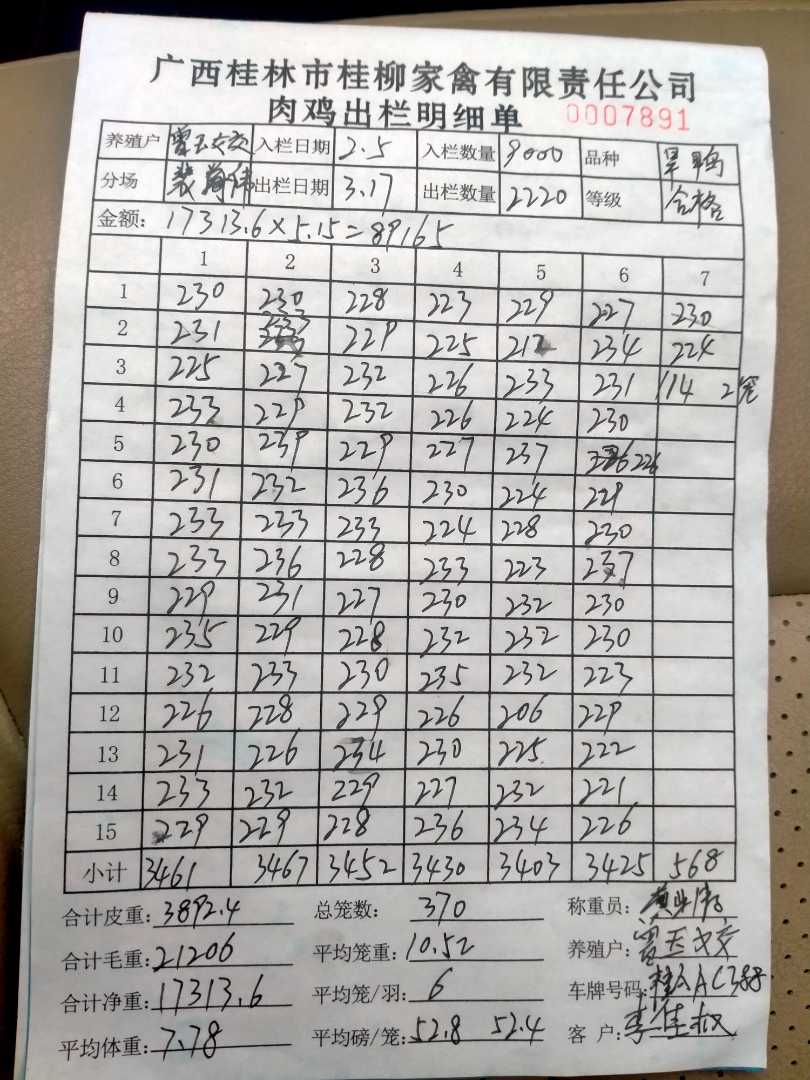 广西桂林市桂柳家禽有限责任公司
肉鸡出栏明细单 0007891
养殖户 入栏日期 2.5 入栏数量 9000 品种 旱鸭
分场 出栏日期 3.17 出栏数量 2220 等级 合格
金额: 17313.6×5.15=89165
1 2 3 4 5 6 7
1 230 230 228 223 229 227 230
2 231 233 229 225 212 234 224
3 225 227 232 226 233 231 114 2笼
4 233 229 232 226 224 230
5 230 239 229 227 237 226
6 231 232 236 230 224 229
7 233 233 233 224 228 230
8 233 236 228 233 223 237
9 229 231 227 230 232 230
10 235 229 228 232 232 230
11 232 233 230 235 232 223
12 226 228 229 226 206 229
13 231 226 234 230 225 222
14 233 232 229 227 232 221
15 229 229 228 236 234 226
小计 3461 3467 3452 3430 3403 3425 568
合计皮重: 3892.4 总笼数: 370 称重员:
合计毛重: 21206 平均笼重: 10.52 养殖户:
合计净重: 17313.6 平均笼/羽: 6 车牌号码: 桂AAC388
平均体重: 7.78 平均磅/笼: 52.8 52.4 客户: